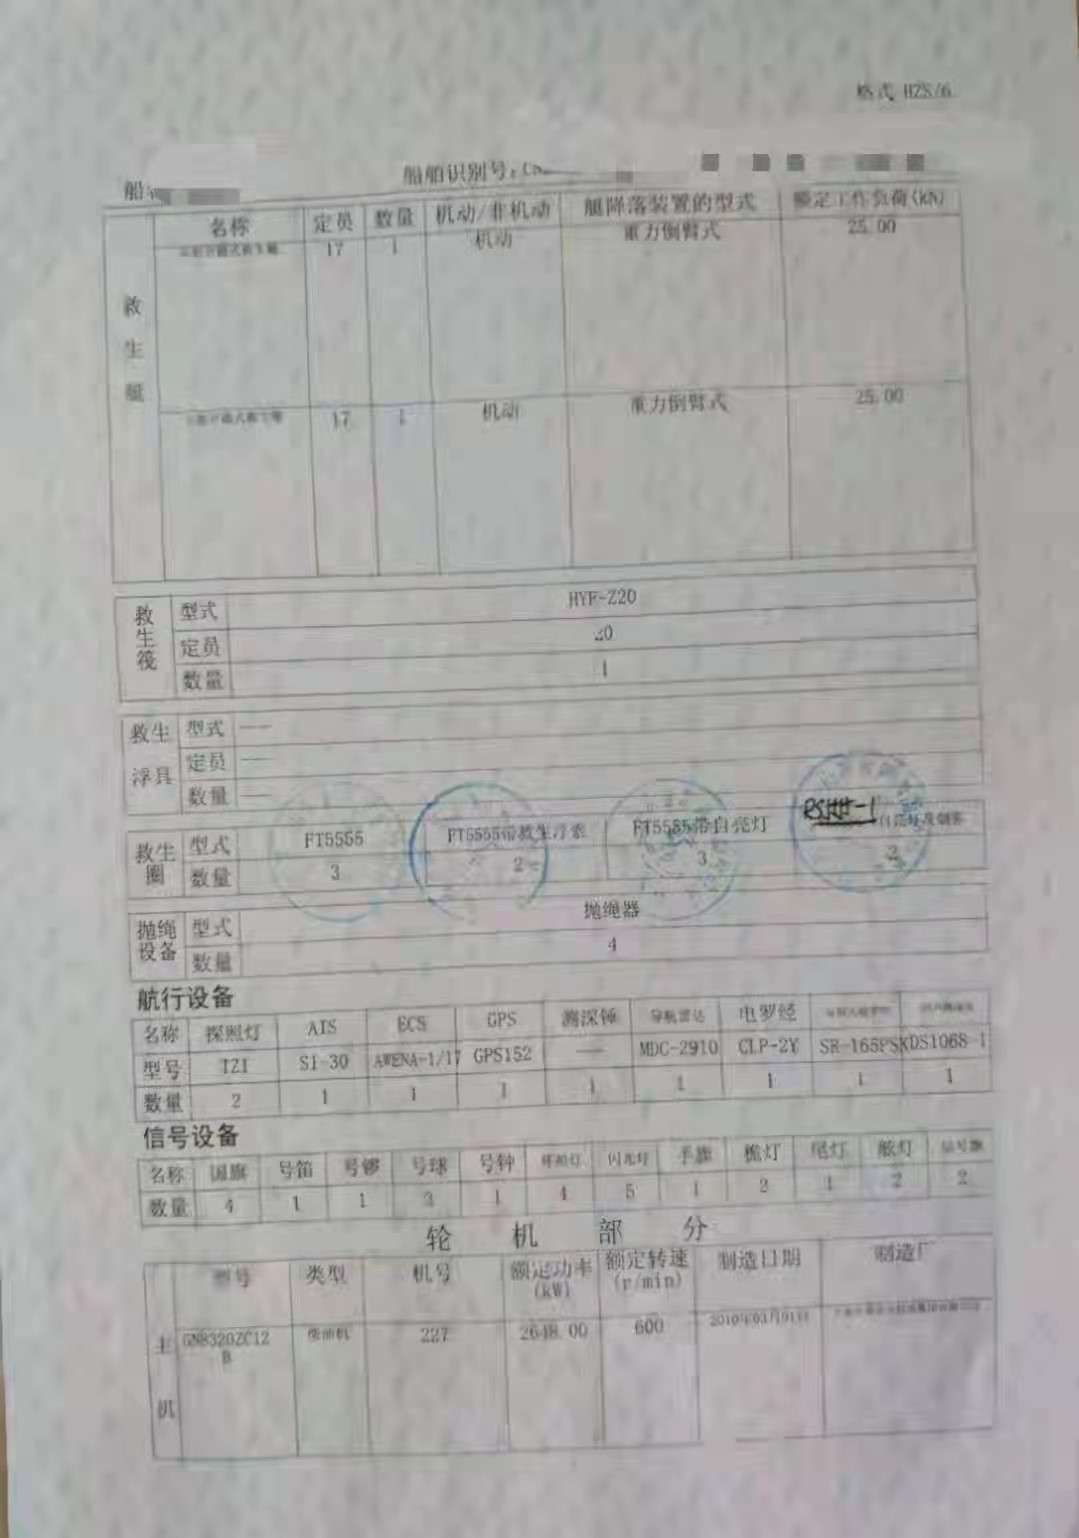 格式 HZS/6
船 船舶识别号:
名称 定员 数量 机动/非机动 艇降落装置的型式 额定工作负荷(kN)
救生艇
17 1 机动 重力倒臂式 25.00
17 1 机动 重力倒臂式 25.00
救生筏
型式 HYF-Z20
定员 20
数量 1
救生浮具
型式 ——
定员 ——
数量 ——
救生圈
型式 FT5555 FT5555带救生浮索 FT5555带自亮灯
数量 3 2 3 2
抛绳设备
型式 抛绳器
数量 4
航行设备
名称 探照灯 AIS ECS GPS 测深锤 导航雷达 电罗经
型号 TZ1 SI-30 AWENA-1/17 GPS152 —— MDC-2910 CLP-2Y SR-165PSK DS1068-1
数量 2 1 1 1 1 1 1 1 1
信号设备
名称 国旗 号笛 号锣 号球 号钟 环照灯 闪光灯 手旗 桅灯 尾灯 舷灯 信号旗
数量 4 1 1 3 1 4 5 1 2 1 2 2
轮机部分
型号 类型 机号 额定功率(kW) 额定转速(r/min) 制造日期 制造厂
主机
GN8320ZC12B 柴油机 227 2648.00 600